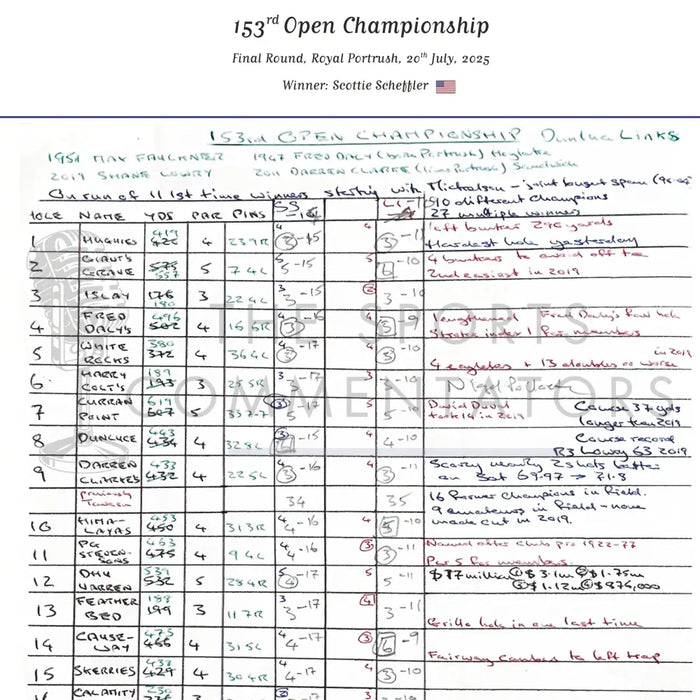 153rd Open Championship
Final Round, Royal Portrush, 20th July, 2025
Winner: Scottie Scheffler
153rd OPEN CHAMPIONSHIP Dunluce Links
1951 MAX FAULKNER 1947 FRED DALY (born Portrush) Hoylake
2019 SHANE LOWRY 2011 DARREN CLARKE (lives Portrush) Sandwich
On run of 11 1st time winners starting with Mickelson - joint longest span
10 different champions
27 multiple winners
HOLE NAME YDS PAR PINS SS
1 HUGHIES 419 420 4 239R 4 3 -15 4 3 -11 left bunker 296 yards
Hardest hole yesterday
2 GIANT'S GRAVE 575 557 5 74L 5 5 -15 5 -10 4 bunkers to avoid off tee
2nd easiest in 2019
3 ISLAY 176 180 3 224L 3 3 -15 3 -10
4 FRED DALY'S 496 502 4 166R 4 3 -16 4 -9 lengthened Fred Daly's fav hole
Stroke index 1 for members
5 WHITE ROCKS 380 372 4 364L 4 3 -17 4 3 -10 in 2019
4 eagles + 13 doubles or worse
6 HARRY COLT'S 189 193 3 255R 3 3 -17 3 3 -10 Nigel Pollock
7 CURRAN POINT 619 607 5 5 -17 5 5 -10 David Duval took 14 in 2019
Course 37 yds longer than 2019
8 DUNLUCE 443 434 4 328L 6 -15 4 4 -10 Course record
R3 Lowry 63 2019
9 DARREN CLARKE'S 433 432 4 225L 4 3 -16 4 3 -11 Scoring nearly 2 shots better
on Sat 69.97 → 71.8
previously Tavern 34 35 16 former champions in field.
9 amateurs in field - none
made cut in 2019.
10 HIMALAYAS 453 450 4 313R 4 4 -16 4 5 -10
11 PG STEVENSON'S 463 475 4 94L 4 4 -16 3 3 -11 Named after club pro 1922-77
Par 5 for members.
12 DHU VARREN 539 532 5 284R 5 4 -17 5 5 -11 $17 million ① $3.1m ② $1.75m
③ $1.12m ④ $876,000
13 FEATHER BED 199 3 117R 3 3 -17 4 3 -11
Grillo hole in one last time
14 CAUSEWAY 473 466 4 315L 4 4 -17 3 6 -9
Fairway cambers to left trap
15 SKERRIES 429 4 304R 4 4 -17 4 3 -10
CALAMITY
THE SPORTS
COMMENTATORS